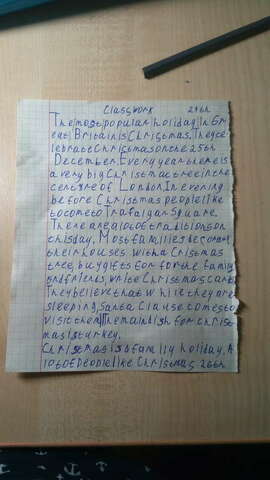 Classwork 24th
The most popular holiday in Gr
eat Britain is Christmas. They ce
lebrate Christmas on the 25th
December. Every year there is
a very big Christmas tree in the
centre of London. In evening
before Christmas people like
to come to Trafalgar Square.
There are a lot of traditions on
this day. Most families decorate
their houses with a Cristmas
tree, buy gifts for for the family
and friends, write Christmas cards
They believe that while they are
sleeping, Santa Clause comes to
visit them. The main dish for Christ
mas is turkey.
Christmas is a family holiday. A
lot of people like Christmas 26th